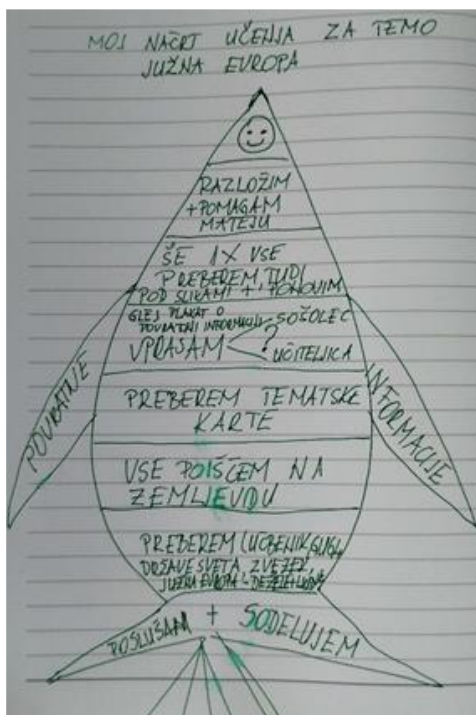 MOJ NAČRT UČENJA ZA TEMO
JUŽNA EVROPA
RAZLOŽIM
+ POMAGAM
MATEJU
ŠE 1X VSE
PREBEREM TUDI
POD SLIKAMI + PONOVIM
GLEJ PLAKAT O
POVRATNI INFORMACIJI
VPRAŠAM ? SOŠOLEC
UČITELJICA
POVRATNE
INFORMACIJE
PREBEREM TEMATSKE
KARTE
VSE POIŠČEM NA
ZEMLJEVIDU
PREBEREM (UČBENIK,
DRŽAVE SVETA, ZVEZEK,
JUŽNA EVROPA - DEŽELE
POSLUŠAM + SODELUJEM